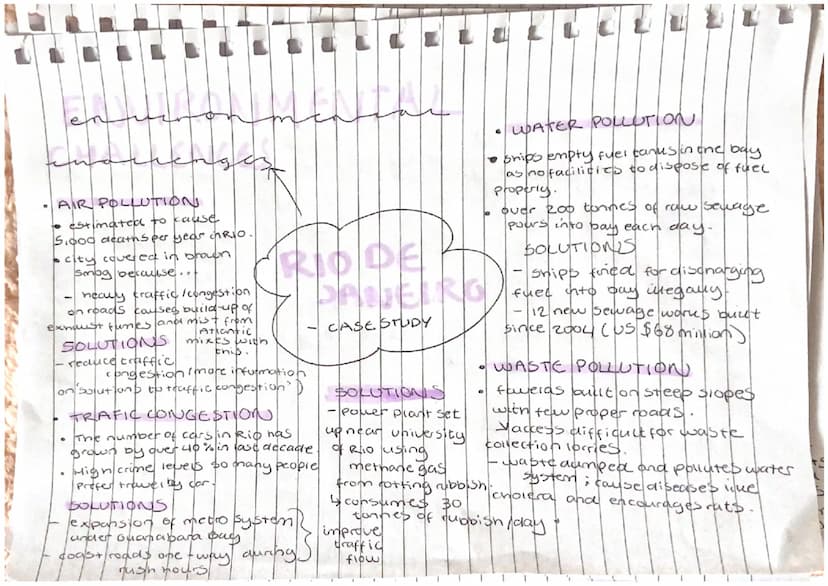 environmental
challenges
RIO DE
JANEIRO
- CASE STUDY
• AIR POLLUTION
• estimated to cause
5,000 deaths per year in RIO.
• city covered in brown
smog because...
- heavy traffic/congestion
on roads causes build-up of
exhaust fumes and mist from
Atlantic
mixes with
this.
SOLUTIONS
- reduce traffic
congestion (more information
on 'solutions to traffic congestion')
• TRAFIC CONGESTION
• The number of cars in Rio has
grown by over 40% in last decade.
• High crime levels so many people
prefer travel by car.
SOLUTIONS
- expansion of metro system
under Guanabara Bay
- coast roads one-way during
rush hours
improve
traffic
flow
SOLUTIONS
- power plant set
up near university
of Rio using
methane gas
from rotting rubbish.
↳ consumes 30
tonnes of rubbish/day.
• WATER POLLUTION
• ships empty fuel tanks in the bay
as no facilities to dispose of fuel
properly.
• over 200 tonnes of raw sewage
pours into bay each day.
SOLUTIONS
- ships fined for discharging
fuel into bay illegally.
- 12 new sewage works built
since 2004 (US $68 million)
• WASTE POLLUTION
• favelas built on steep slopes
with few proper roads.
↳ access difficult for waste
collection lorries.
- waste dumped and pollutes water
system; cause diseases like
cholera and encourages rats.